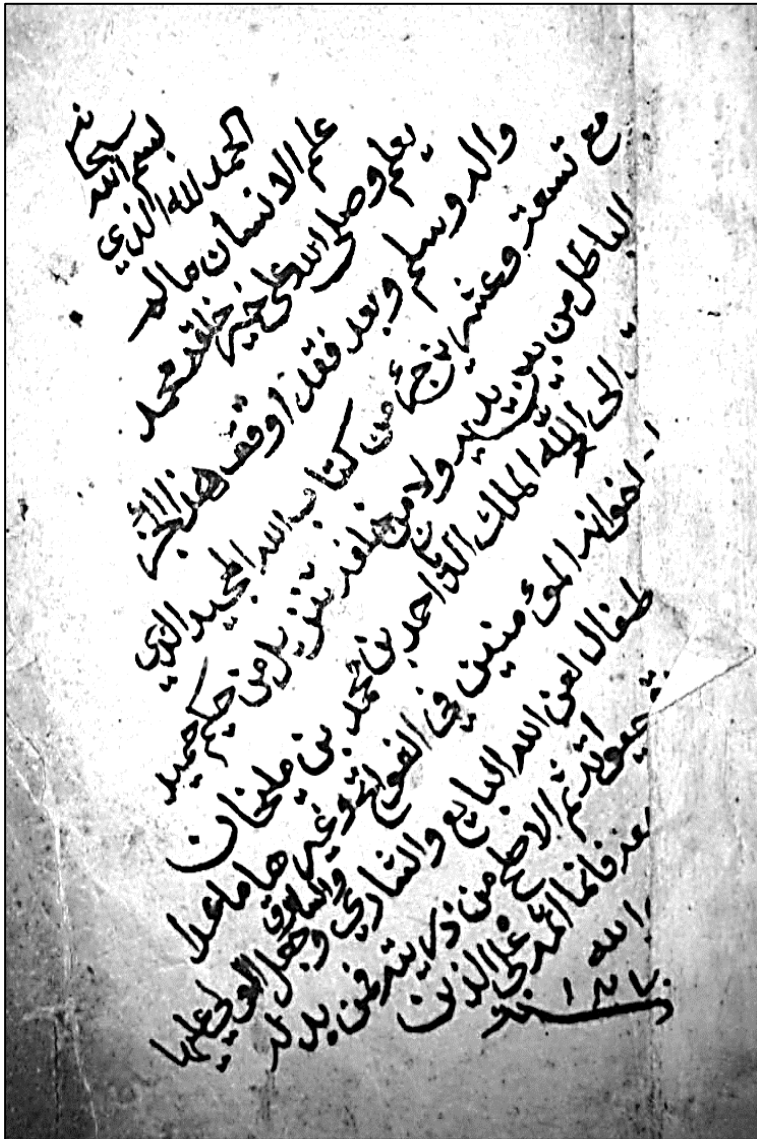 بسم الله
سبحانه
الحمد لله الذي
علم الانسان مالم
يعلم وصلى الله على خير خلقه محمد
واله وسلم وبعد فقد اوقف هذا الجز
مع تسعة وعشرين جزءً من كتاب الله المجيد الذي
الباطل من بين يديه ولا من خلفه تنزيل من حكيم حميد
الى الله الملك احمد بن محمد بن ملنحان
اخوانه المؤمنين في الفواتح وغيرها ما عدا
طفال لعن الله البايع والشاري والسارق وجعل الولي عليها
ثم الاصلح من ذريته فمن بدله
فانما اثمه على الذين
الله